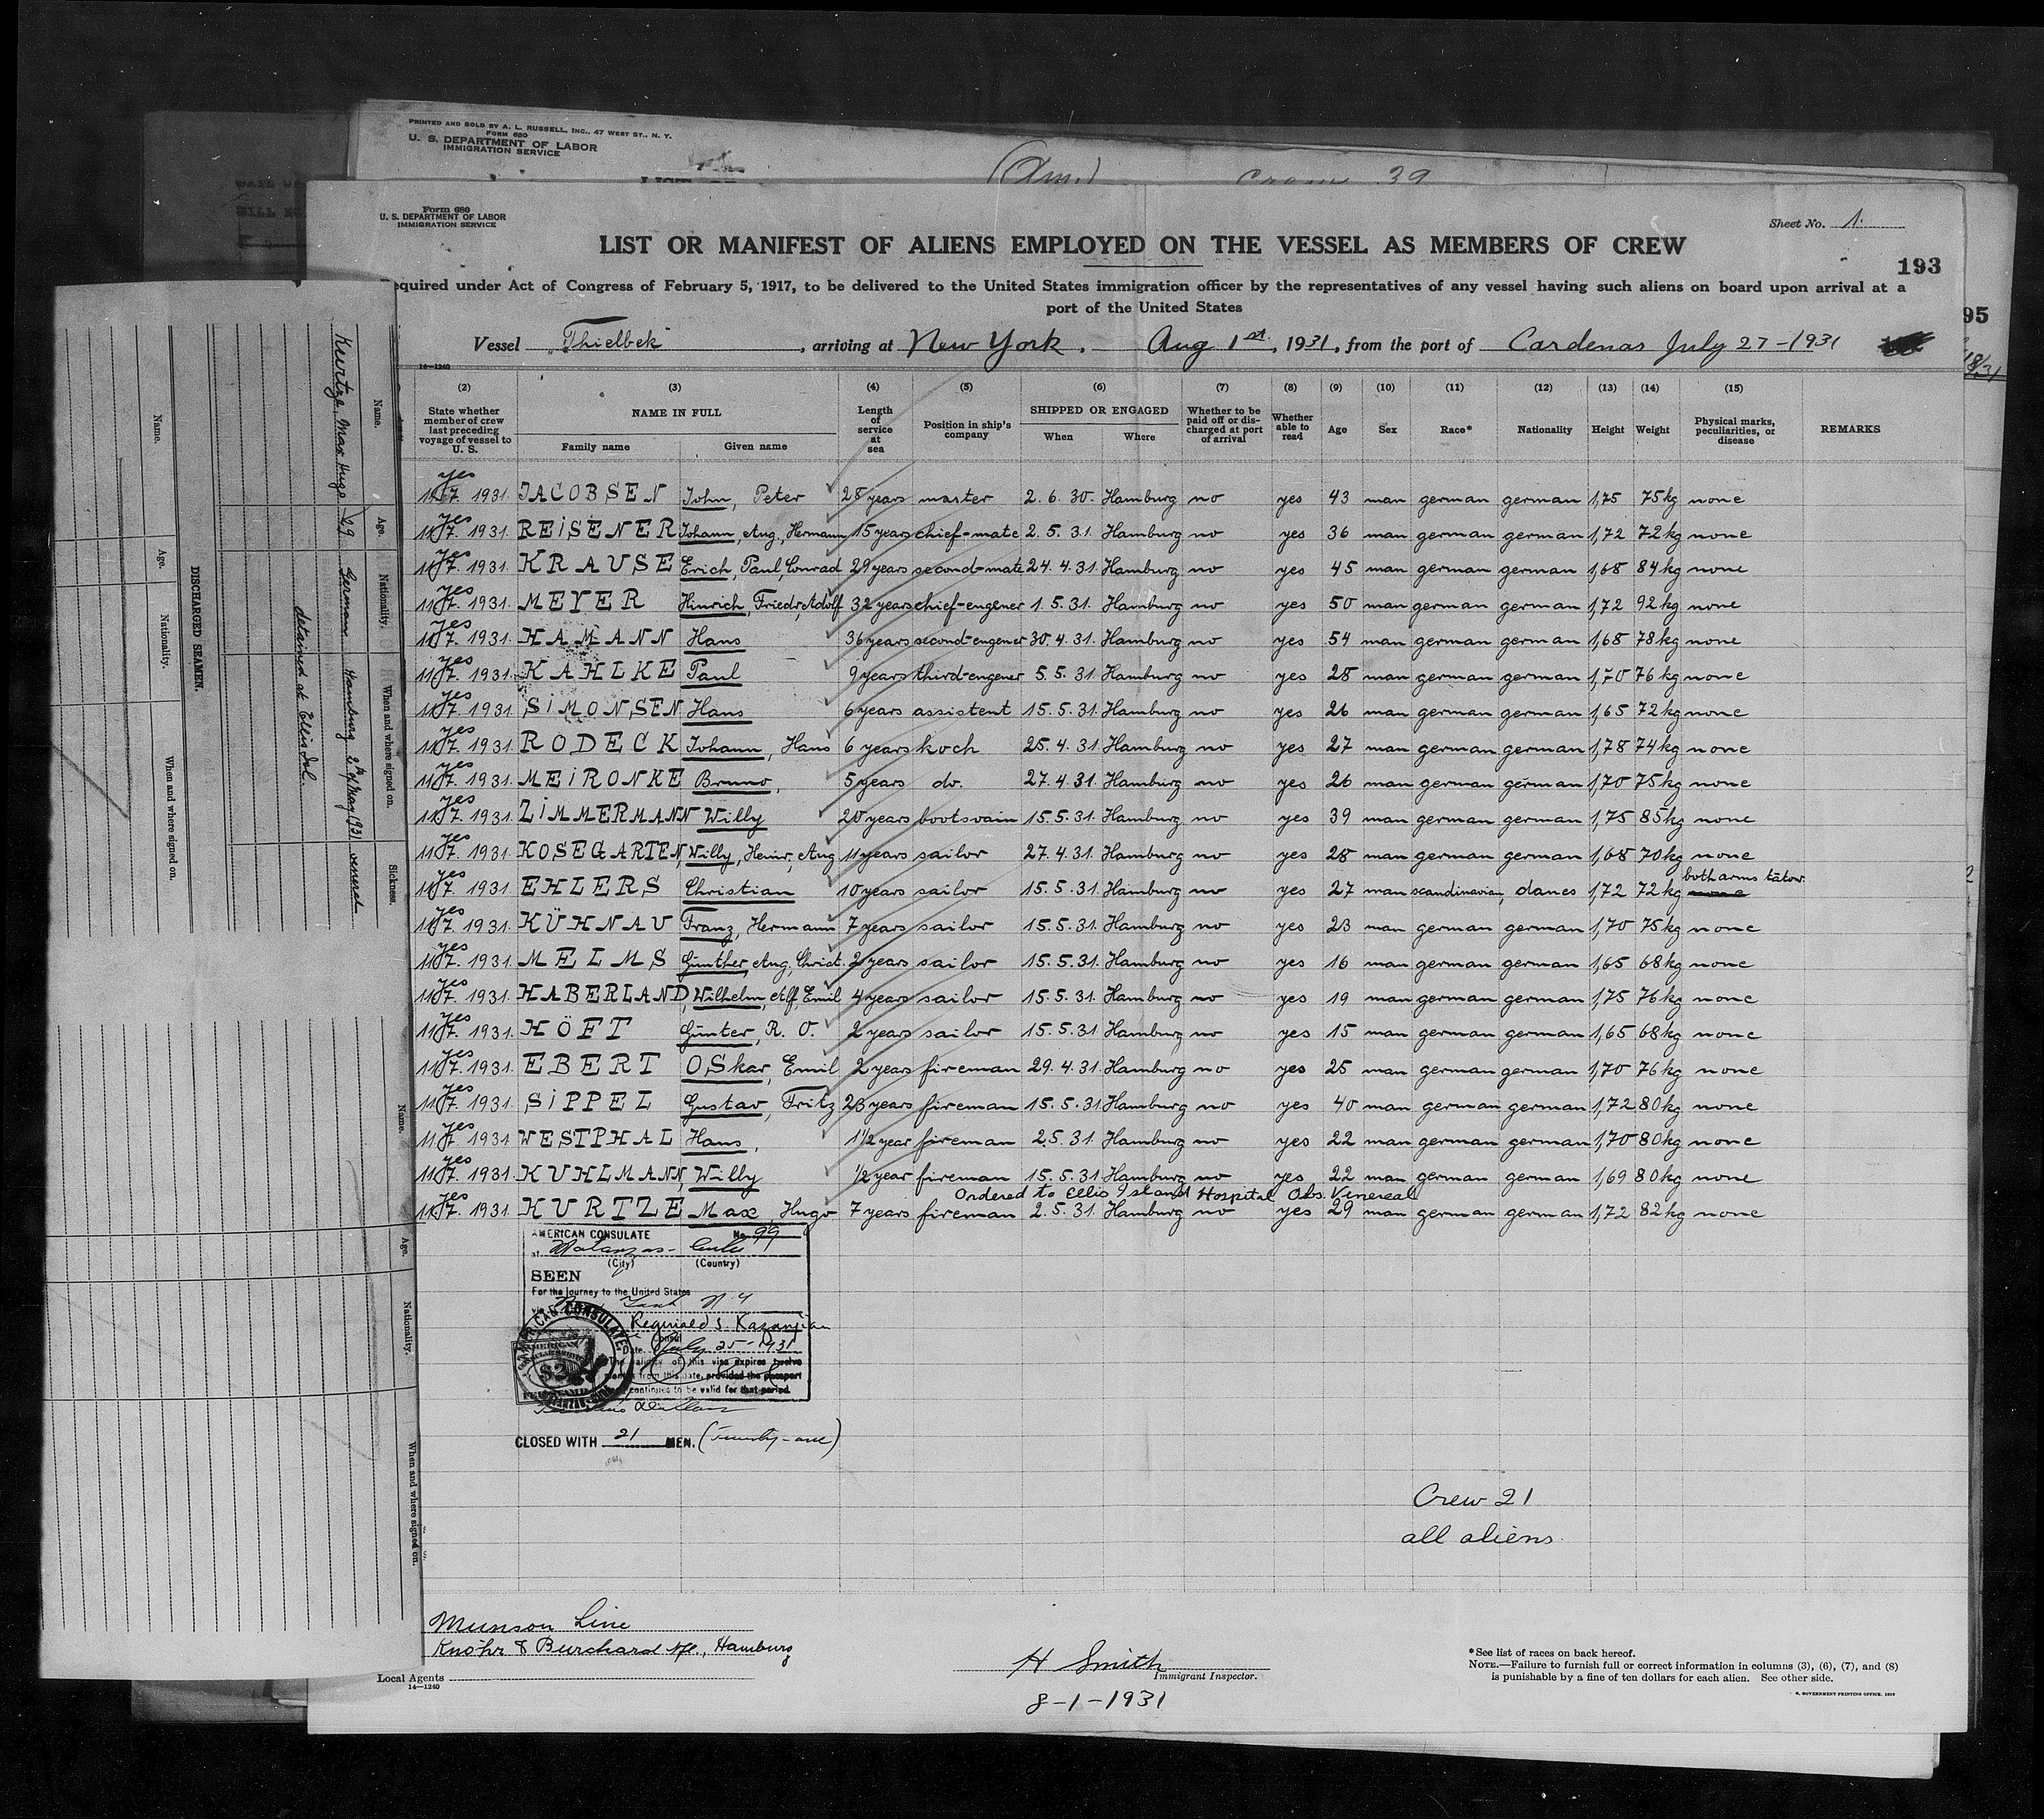 PRINTED AND SOLD BY A. L. RUSSELL, INC., 47 WEST ST., N. Y.
FORM 680
U. S. DEPARTMENT OF LABOR
IMMIGRATION SERVICE
(Am.)
Form 680
U. S. DEPARTMENT OF LABOR
IMMIGRATION SERVICE
Sheet No. 1.
LIST OR MANIFEST OF ALIENS EMPLOYED ON THE VESSEL AS MEMBERS OF CREW
193
equired under Act of Congress of February 5, 1917, to be delivered to the United States immigration officer by the representatives of any vessel having such aliens on board upon arrival at a
port of the United States
95
Vessel „Thielbek“, arriving at New York, Aug 1st, 1931, from the port of Cardenas July 27-1931
14—1240
(2) (3) (4) (5) (6) (7) (8) (9) (10) (11) (12) (13) (14) (15)
State whether member of crew last preceding voyage of vessel to U. S.
NAME IN FULL
Family name Given name
Length of service at sea
Position in ship's company
SHIPPED OR ENGAGED
When Where
Whether to be paid off or discharged at port of arrival
Whether able to read
Age Sex Race* Nationality Height Weight
Physical marks, peculiarities, or disease
REMARKS
yes 7. 1931. JACOBSEN John, Peter 28 years master 2. 6. 30. Hamburg no yes 43 man german german 1,75 75kg none
yes 7. 1931. REISENER Johann, Aug, Hermann 15 years chief-mate 2. 5. 31. Hamburg no yes 36 man german german 1,72 72kg none
yes 7. 1931. KRAUSE Erich, Paul, Conrad 29 years second-mate 24. 4. 31. Hamburg no yes 45 man german german 1,68 84kg none
yes 7. 1931. MEYER Hinrich, Friedr, Adolf 32 years chief-engener 1. 5. 31. Hamburg no yes 50 man german german 1,72 92kg none
yes 7. 1931. HAMANN Hans 36 years second-engener 30. 4. 31. Hamburg no yes 54 man german german 1,68 78kg none
yes 7. 1931. KAHLKE Paul 9 years third-engener 5. 5. 31. Hamburg no yes 28 man german german 1,70 76kg none
yes 7. 1931. SIMONSEN Hans 6 years assistent 15. 5. 31. Hamburg no yes 26 man german german 1,65 72kg none
yes 7. 1931. RODECK Johann, Hans 6 years koch 25. 4. 31. Hamburg no yes 27 man german german 1,78 74kg none
yes 7. 1931. MEIRONKE Bruno, 5 years do. 27. 4. 31. Hamburg no yes 26 man german german 1,70 75kg none
yes 7. 1931. ZIMMERMANN Willy 20 years bootsvain 15. 5. 31. Hamburg no yes 39 man german german 1,75 85kg none
yes 7. 1931. KOSEGARTEN, Willy, Heinr, Aug 11 years sailor 27. 4. 31. Hamburg no yes 28 man german german 1,68 70kg none
both arms tätow.
yes 7. 1931. EHLERS Christian 10 years sailor 15. 5. 31. Hamburg no yes 27 man scandinavian, danes 1,72 72kg none
yes 7. 1931. KÜHNAU Franz, Hermann 7 years sailor 15. 5. 31. Hamburg no yes 23 man german german 1,70 75kg none
yes 7. 1931. MELMS Günther, Aug, Christ. 2 years sailor 15. 5. 31. Hamburg no yes 16 man german german 1,65 68kg none
yes 7. 1931. HABERLAND, Wilhelm, Alf, Emil 4 years sailor 15. 5. 31. Hamburg no yes 19 man german german 1,75 76kg none
yes 7. 1931. HÖFT Günter, R. O. 2 years sailor 15. 5. 31. Hamburg no yes 15 man german german 1,65 68kg none
yes 7. 1931. EBERT OSkar, Emil 2 years fireman 29. 4. 31. Hamburg no yes 25 man german german 1,70 76kg none
yes 7. 1931. SIPPEL Gustav, Fritz 23 years fireman 15. 5. 31 Hamburg no yes 40 man german german 1,72 80kg none
yes 7. 1931 WESTPHAL Hans, 1 1/2 year fireman 2. 5. 31. Hamburg no yes 22 man german german 1,70 80kg none
yes 7. 1931. KUHLMANN, Willy 1/2 year fireman 15. 5. 31 Hamburg no yes 22 man german german 1,69 80kg none
Ordered to Ellis Island Hospital Obs. Venereal
yes 7. 1931. KURTZE Max, Hugo 7 years fireman 2. 5. 31. Hamburg no yes 29 man german german 1,72 82kg none
AMERICAN CONSULATE No. 99
at Matanzas - Cuba
(City) (Country)
SEEN
For the journey to the United States
Reginald S. Kazanjian
Consul
Date July 25-1931
The validity of this visa expires twelve
months from this date, provided the passport
continues to be valid for that period.
AMERICAN CONSULATE
CLOSED WITH 21 MEN. (Twenty-one)
Crew 21
all aliens.
Munson Line
Knöhr & Burchard Nfl., Hamburg
Local Agents
14—1240
H Smith
Immigrant Inspector.
8-1-1931
*See list of races on back hereof.
NOTE.—Failure to furnish full or correct information in columns (3), (6), (7), and (8)
is punishable by a fine of ten dollars for each alien. See other side.
DISCHARGED SEAMEN.
Name. Age. Nationality. When and where signed on. Sickness.
Kurtze, Max Hugo 29 German Hamburg 2th May 1931 venereal
detained at Ellis Isl.
Name. Age. Nationality. When and where signed on.
Name. Age. Nationality. When and where signed on.